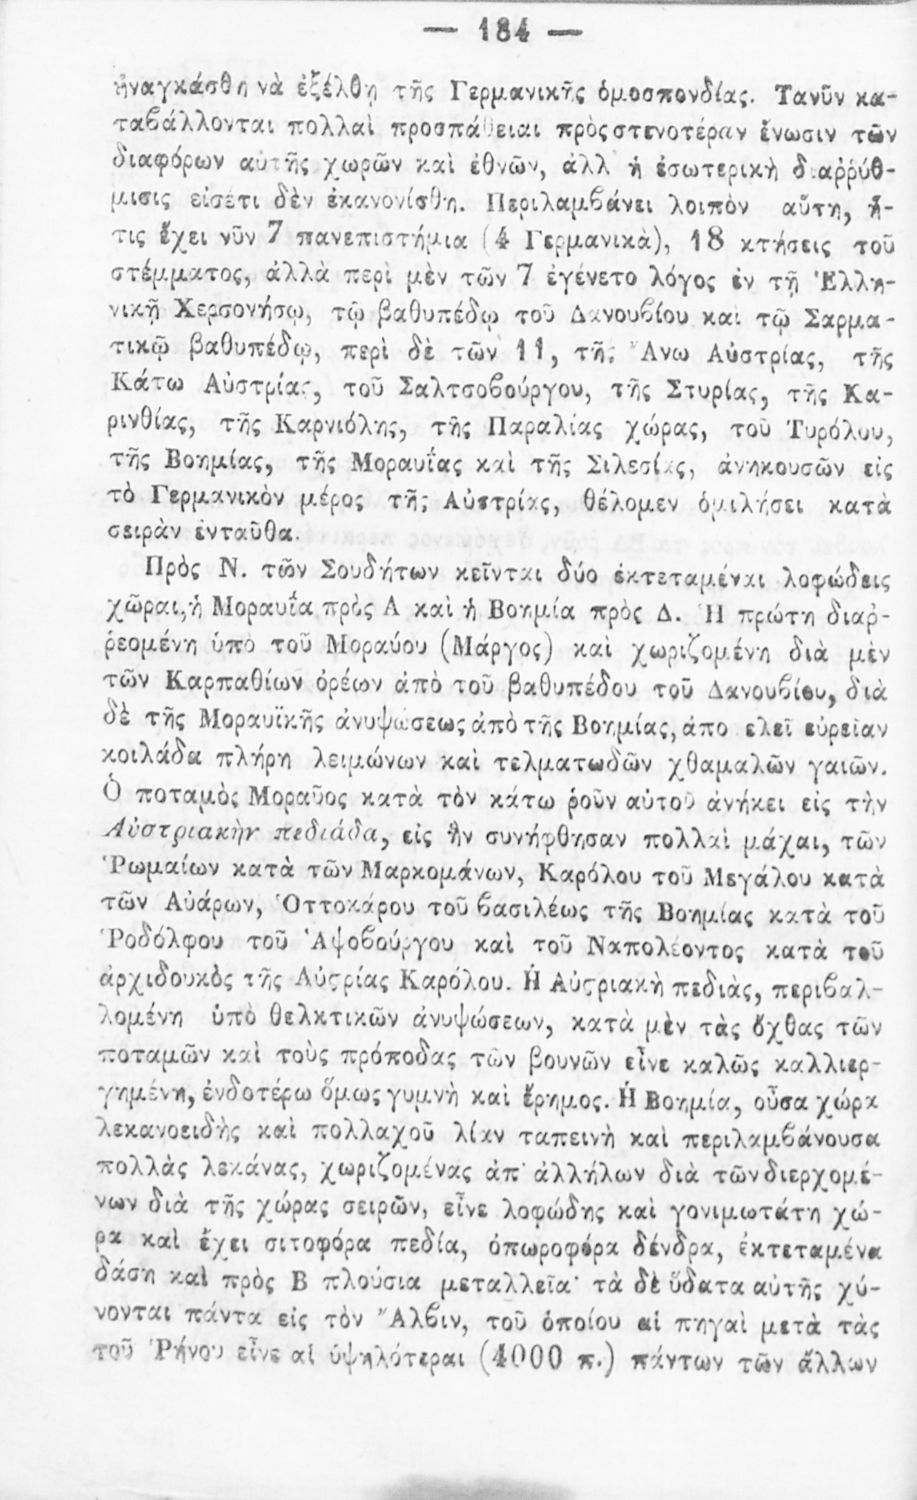 — 184 —
ἠναγκάσθη νὰ ἐξέλθῃ τῆς Γερμανικῆς ὁμοσπονδίας. Τανῦν κα-
ταβάλλονται πολλαὶ προσπάθειαι πρὸς στενοτέραν ἕνωσιν τῶν
διαφόρων αὐτῆς χωρῶν καὶ ἐθνῶν, ἀλλ' ἡ ἐσωτερικὴ διαῤῥύθ-
μισις εἰσέτι δὲν ἐκανονίσθη. Περιλαμβάνει λοιπὸν αὕτη, ἥ-
τις ἔχει νῦν 7 πανεπιστήμια (4 Γερμανικὰ), 18 κτήσεις τοῦ
στέμματος, ἀλλὰ περὶ μὲν τῶν 7 ἐγένετο λόγος ἐν τῇ Ἑλλη-
νικῇ Χερσονήσῳ, τῷ βαθυπέδῳ τοῦ Δανουβίου καὶ τῷ Σαρμα-
τικῷ βαθυπέδῳ, περὶ δὲ τῶν 11, τῆς Ἄνω Αὐστρίας, τῆς
Κάτω Αὐστρίας, τοῦ Σαλτσοβούργου, τῆς Στυρίας, τῆς Κα-
ρινθίας, τῆς Καρνιόλης, τῆς Παραλίας χώρας, τοῦ Τυρόλου,
τῆς Βοημίας, τῆς Μοραυΐας καὶ τῆς Σιλεσίας, ἀνηκουσῶν εἰς
τὸ Γερμανικὸν μέρος τῆς Αὐστρίας, θέλομεν ὁμιλήσει κατὰ
σειρὰν ἐνταῦθα.
Πρὸς Ν. τῶν Σουδήτων κεῖνται δύο ἐκτεταμέναι λοφώδεις
χῶραι, ἡ Μοραυΐα πρὸς Α καὶ ἡ Βοημία πρὸς Δ. Ἡ πρώτη διαῤ-
ῥεομένη ὑπὸ τοῦ Μοραύου (Μάργος) καὶ χωριζομένη διὰ μὲν
τῶν Καρπαθίων ὀρέων ἀπὸ τοῦ βαθυπέδου τοῦ Δανουβίου, διὰ
δὲ τῆς Μοραυϊκῆς ἀνυψώσεως ἀπὸ τῆς Βοημίας, ἀποτελεῖ εὐρεῖαν
κοιλάδα πλήρη λειμώνων καὶ τελματωδῶν χθαμαλῶν γαιῶν.
Ὁ ποταμὸς Μοραῦος κατὰ τὸν κάτω ῥοῦν αὐτοῦ ἀνήκει εἰς τὴν
Αὐστριακὴν πεδιάδα, εἰς ἣν συνήφθησαν πολλαὶ μάχαι, τῶν
Ῥωμαίων κατὰ τῶν Μαρκομάνων, Καρόλου τοῦ Μεγάλου κατὰ
τῶν Αὐάρων, Ὀττοκάρου τοῦ βασιλέως τῆς Βοημίας κατὰ τοῦ
Ῥοδόλφου τοῦ Ἀψοβούργου καὶ τοῦ Ναπολέοντος κατὰ τοῦ
ἀρχιδουκὸς τῆς Αὐςρίας Καρόλου. Ἡ Αὐςριακὴ πεδιὰς, περιβαλ-
λομένη ὑπὸ θελκτικῶν ἀνυψώσεων, κατὰ μὲν τὰς ὄχθας τῶν
ποταμῶν καὶ τοὺς πρόποδας τῶν βουνῶν εἶνε καλῶς καλλιερ-
γημένη, ἐνδοτέρω ὅμως γυμνὴ καὶ ἔρημος. Ἡ Βοημία, οὖσα χώρα
λεκανοειδὴς καὶ πολλαχοῦ λίαν ταπεινὴ καὶ περιλαμβάνουσα
πολλὰς λεκάνας, χωριζομένας ἀπ' ἀλλήλων διὰ τῶν διερχομέ-
νων διὰ τῆς χώρας σειρῶν, εἶνε λοφώδης καὶ γονιμωτάτη χώ-
ρα καὶ ἔχει σιτοφόρα πεδία, ὀπωροφόρα δένδρα, ἐκτεταμένα
δάση καὶ πρὸς Β πλούσια μεταλλεῖα· τὰ δὲ ὕδατα αὐτῆς χύ-
νονται πάντα εἰς τὸν Ἄλβιν, τοῦ ὁποίου αἱ πηγαὶ μετὰ τὰς
τοῦ Ῥήνου εἶνε αἱ ὑψηλότεραι (4000 π.) πάντων τῶν ἄλλων